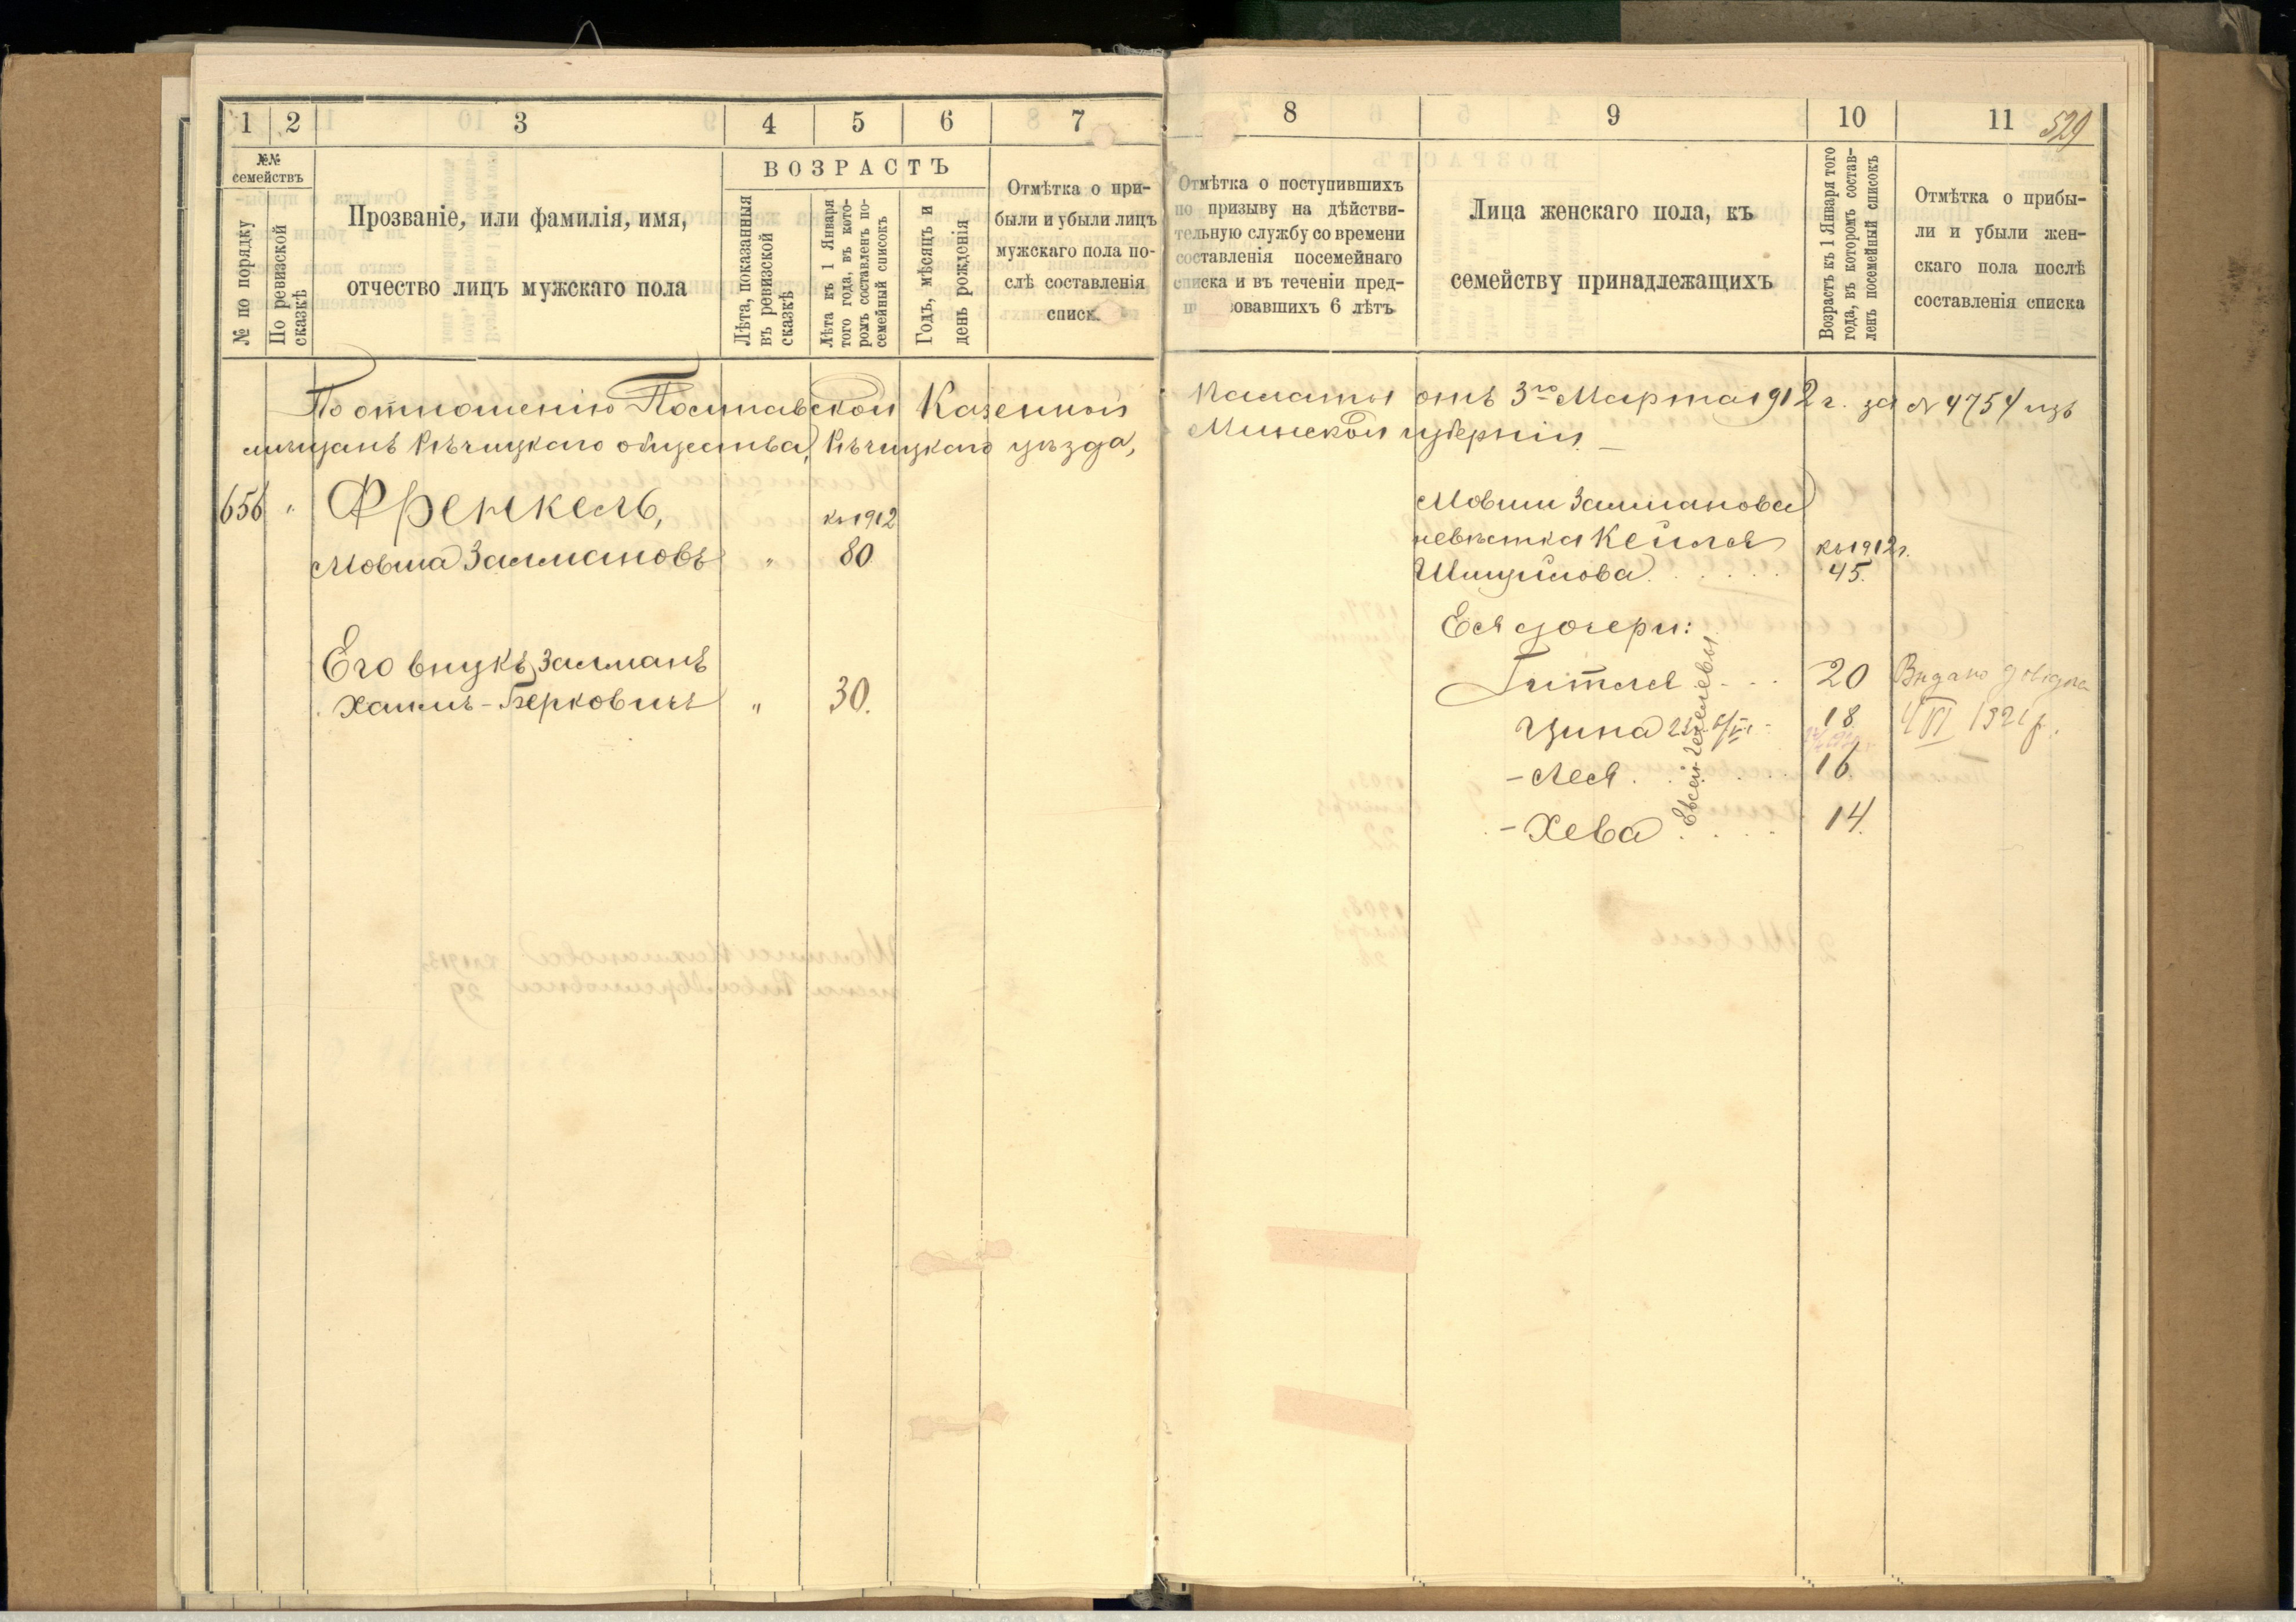 1 2 3 4 5 6 7
№№ семействъ
№ по порядку
По ревизской сказкѣ
Прозваніе, или фамилія, имя,
отчество лицъ мужскаго пола
ВОЗРАСТЪ
Лѣта, показанныя
въ ревизской
сказкѣ
Лѣта къ 1 Января
того года, въ кото-
ромъ составленъ по-
семейный списокъ
Годъ, мѣсяцъ и
день рожденія
Отмѣтка о при-
были и убыли лицъ
мужскаго пола по-
слѣ составленія
списк
По отношенію Полтавской Казенной
мѣщанъ Рѣчицкаго общества, Рѣчицкаго уѣзда,
656 " Френкель,
къ 1912
Мовша Залмановъ " 80
Его внукъ Залманъ
Хаимъ-Берковичъ " 30.
8 9 10 11
529
Отмѣтка о поступившихъ
по призыву на дѣйстви-
тельную службу со времени
составленія посемейнаго
списка и въ теченіи пред-
шовавшихъ 6 лѣтъ
Лица женскаго пола, къ
семейству принадлежащихъ
Возрастъ къ 1 Января того
года, въ которомъ состав-
ленъ посемейный списокъ
Отмѣтка о прибы-
ли и убыли жен-
скаго пола послѣ
составленія списка
Палаты отъ 3го Марта 1912 г. за № 4754 изъ
Минской губерніи
Мовши Залманова
невѣстка Кейля къ 1912 г.
Шмуйлова 45.
Ея дочери:
Гитля 20 Видано
Цина 18 4 VI 1921 р.
- Лея 16
- Хева 14.